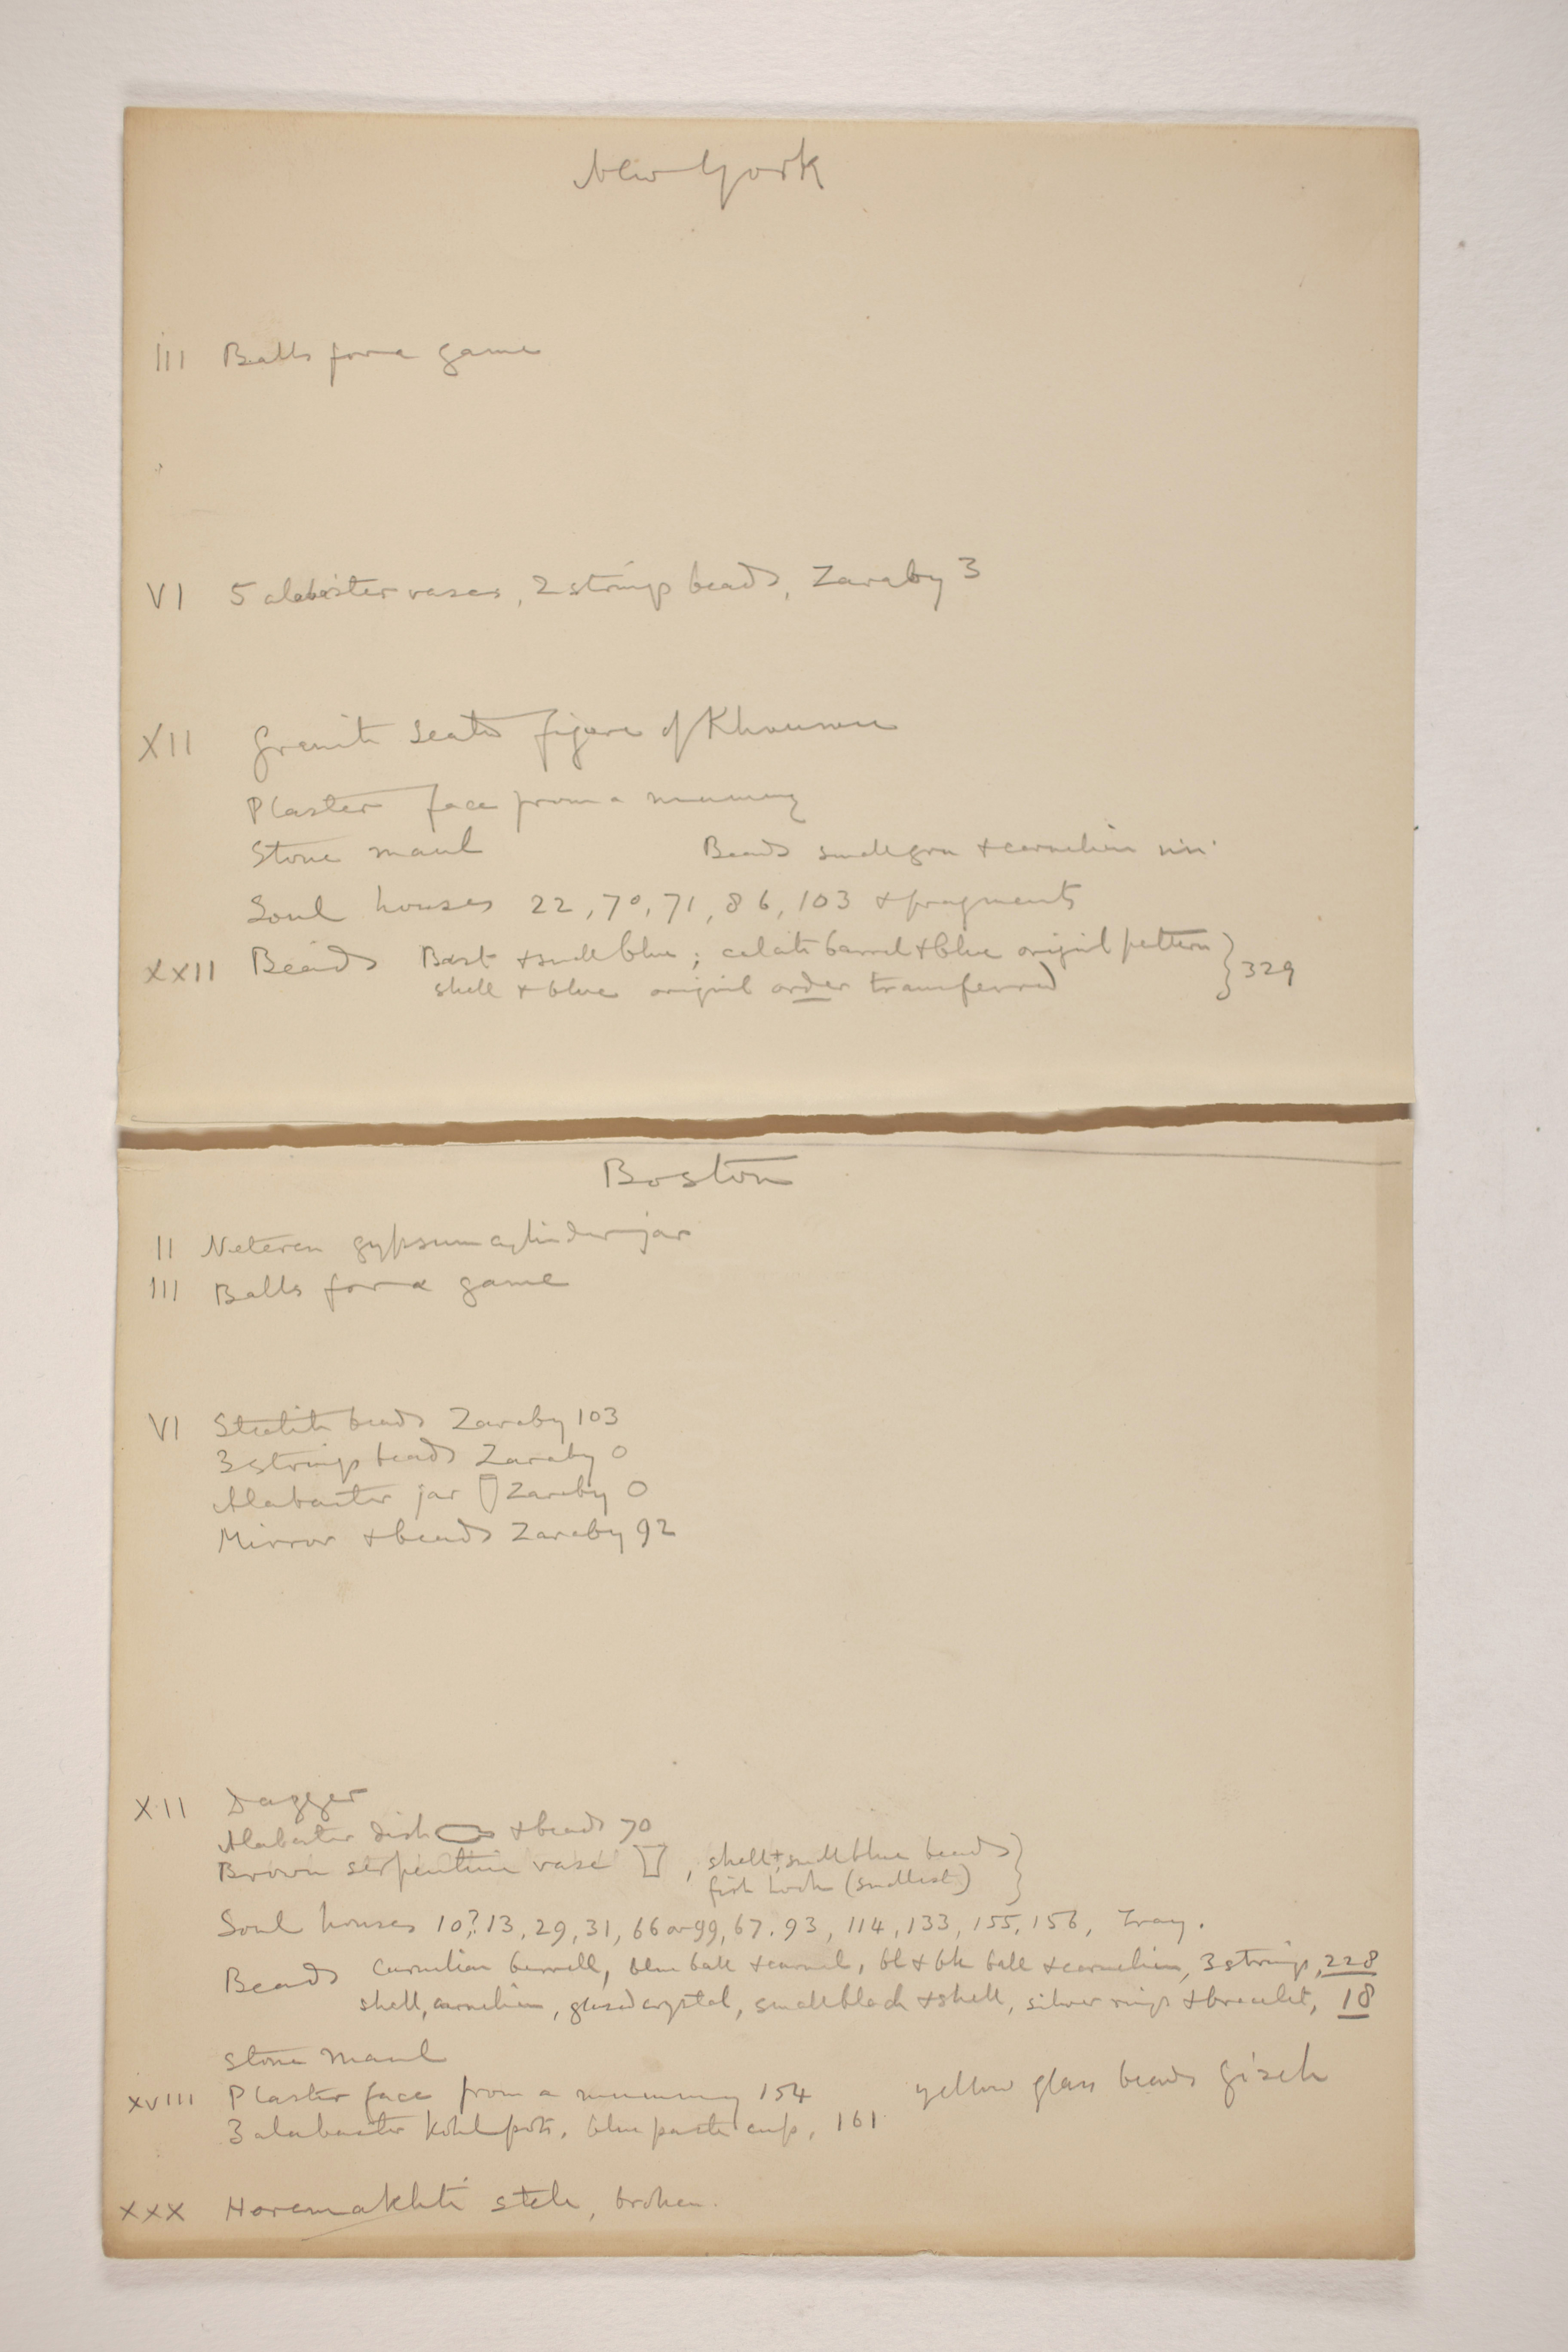 New York
III Balls for a game
VI 5 alabaster vases, 2 strings beads, Zaraby 3
XII Granite seated figure of Khnumu
Plaster face from a mummy
Stone maul Beads small grn & carnelian
Soul houses 22, 70, 71, 86, 103 & fragments
XXII Beads Bast & small blue; calcite barrel & blue original pattern } 329
shell & blue original order transferred
Boston
II Neteren gypsum cylinder jar
III Balls for a game
VI Steatite beads Zaraby 103
3 strings beads Zaraby 0
Alabaster jar Zaraby 0
Mirror & beads Zaraby 92
XII Dagger
Alabaster dish & beads 70
Brown serpentine vase , shell & small blue beads }
fish hook (smallest)
Soul houses 10?, 13, 29, 31, 66 or 99, 67, 93, 114, 133, 155, 156, Tray.
Beads Carnelian barrell, blue ball & carnel, bl & bk ball & carnelian, 3 strings, 228
shell, carnelian, glazed crystal, small black & shell, silver rings & bracelet, 18
Stone maul
XVIII Plaster face from a mummy 154 yellow glass beads Gizeh
3 alabaster kohl pots, blue paste cup, 161
XXX Horemakhti stele, broken.